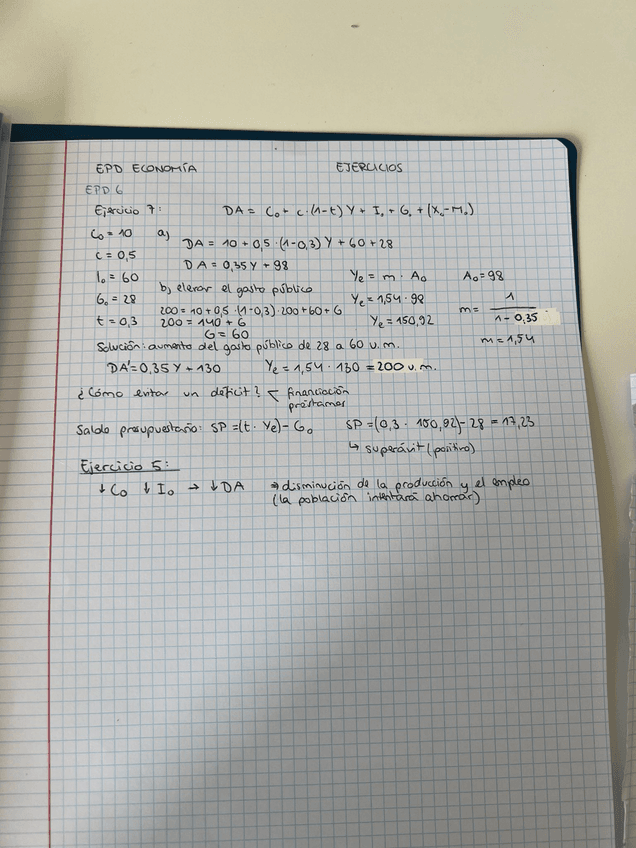 EPD ECONOMÍA EJERCICIOS
EPD 6
Ejercicio 7: DA = C₀ + c·(1-t) Y + I₀ + G₀ + (X₀-M₀)
C₀ = 10 a)
DA = 10 + 0,5·(1-0,3) Y + 60 + 28
c = 0,5
DA = 0,35 Y + 98
I₀ = 60 b) elevar el gasto público Ye = m · A₀ A₀ = 98
G₀ = 28 200 = 10 + 0,5·(1-0,3)·200 + 60 + G Ye = 1,54 · 98 m = 1 / 1 - 0,35
t = 0,3 200 = 140 + G Ye = 150,92
G = 60 m = 1,54
Solución: aumento del gasto público de 28 a 60 u.m.
DA' = 0,35 Y + 130 Ye = 1,54 · 130 = 200 u.m.
¿Cómo evitar un déficit? < financiación
préstamos
Saldo presupuestario: SP = (t · Ye) - G₀ SP = (0,3 · 150,92) - 28 = 17,23
↳ superávit (positivo)
Ejercicio 5:
↓ C₀ ↓ I₀ → ↓ DA ⇒ disminución de la producción y el empleo
(la población intentará ahorrar)